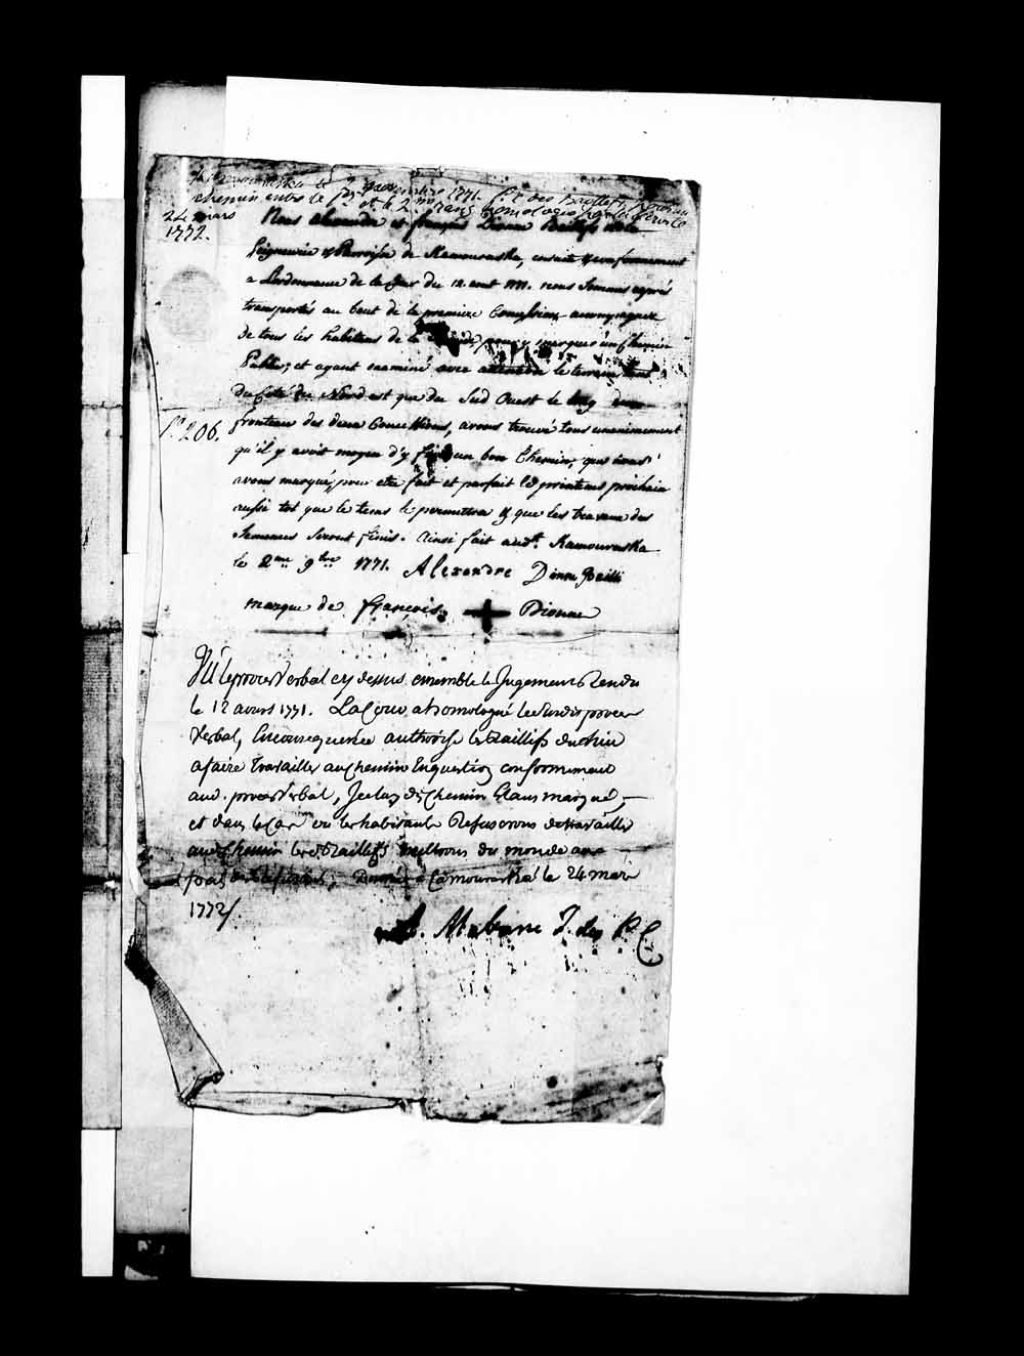 Kamouraska le 2 novembre 1771. P. V. des Baillifs pour un
chemin entre le 1er et le 2me rang homologué par la
24 mars
1772.
Nous Alexandre et françois Dionne Baillifs de la
Seigneurie & Parroisse de Kamouraska, ensuite & conformement
a Lordonnance de la Cour du 12 aout 1771. nous Sommes
transportés au bout de la premiere Concession accompagnez
de tous les habitans de la pour y marquer un Chemin
Public, et ayant examiné avec attention le terrein tant
Du Coté du Nord est que du Sud Ouest le long
fronteau des deux Concessions, avons trouvé tous unanimement
No 206.
qu'il y avoit moyen d'y faire un bon Chemin, que nous
avons marqué, pour etre fait et parfait le printems prochain
aussi tot que le tems le permettra & que les travaux des
Semences seront finis. Ainsi fait aud.t Kamouraska
le 2me 9bre 1771. Alexandre Dionne Bailli
marque de françois + Dionne
Vû le procès Verbal cy dessus ensemble le Jugement Rendu
le 12 aoust 1771. La Cour a homologué led. procès
Verbal, En consequence authorise les Baillifs
a faire Travailler au chemin En question conformement
aud. procès Verbal, marqué,
et dans le Cas ou les habitants Refuserons de travailler
aud. Chemin les d. Baillifs mettrons du monde
, Donné a Camouraska le 24 mars
1772/.
A. Mabane J. des P. C.